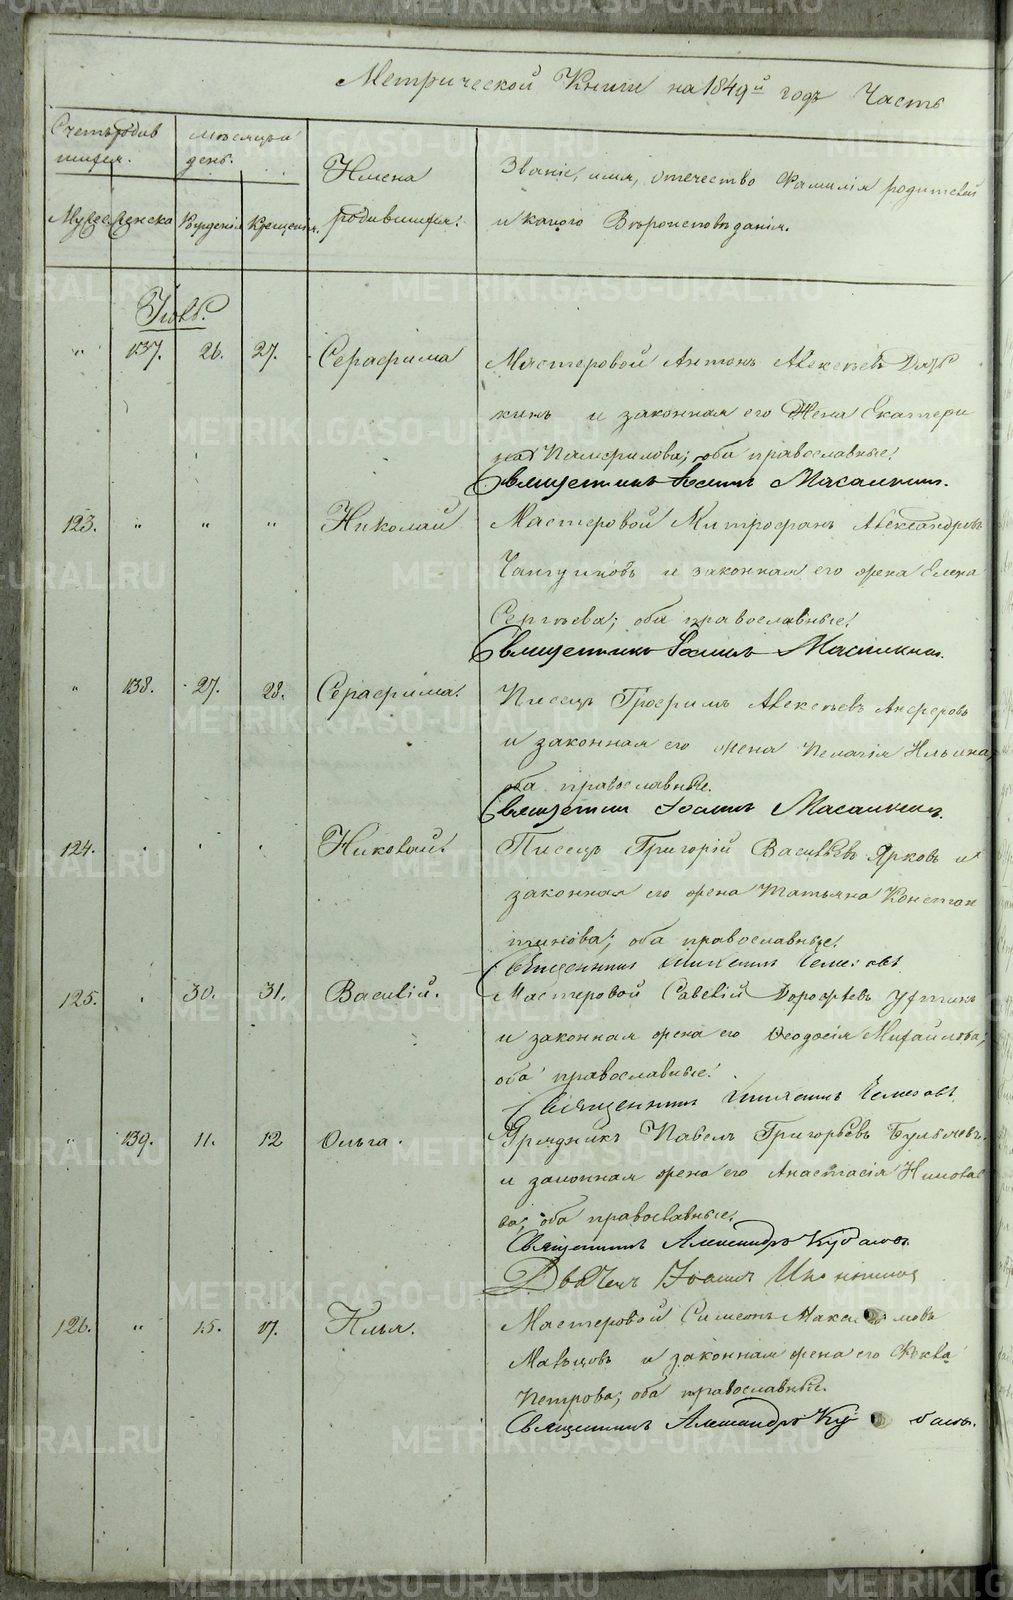 Метрической Книги на 1849й годъ Часть
Счетъ родив
шихся.
Мѣсяцъ и
день.
Имена
родившихся.
Званіе, имя, отечество Фамилія родителей
и какого Вѣроисповѣданія.
Мужес. Женска Рожденія Крещенія.
Іюль.
" 137. 26. 27. Серафима Мастеровой Антонъ Алексѣевъ
кинъ и законная его Жена Екатери
на Памфилова; оба православные.
Священникъ Іоаннъ
123. " " " Николай Мастеровой Митрофанъ Александровъ
и законная его жена Елена
Сергѣева; оба православные.
Священникъ Іоаннъ
" 138. 27. 28. Серафима. Писецъ Трофимъ Алексѣевъ Анферовъ
и законная его жена Пелагія Ильина,
оба православные.
Священник Іоаннъ
124. Николай. Писецъ Григорій Васильевъ Ярковъ и
законная его жена Татьяна Констан
тинова; оба православные.
Священникъ
125. 30. 31. Василій. Мастеровой Савелій Дорофѣевъ
и законная жена его Ѳеодосія Михайлова;
оба православные.
Священникъ
" 139. 11. 12 Ольга. Урядникъ Павелъ Григорьевъ Булычевъ
и законная жена его Анастасія Николае
ва; оба православные.
Священникъ Александръ
Іоаннъ
126. " 15. 17. Илья. Мастеровой Симеонъ
Мальцовъ и законная жена его Ѳекла
Петрова; оба православные.
Священникъ Александръ
METRIKI.GASO-URAL.RU